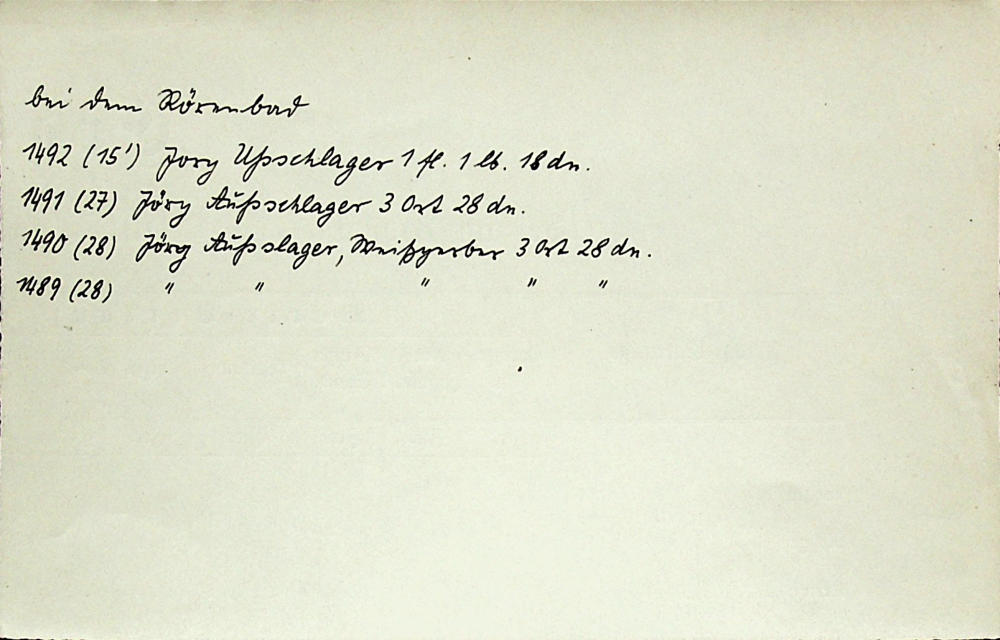 bei dem Rörenbad
1492 (15') Jory Ußschlager 1 fl. 1 lb. 18 dn.
1491 (27) Jörg Aufsschlager 3 Ort 28 dn.
1490 (28) Jörg Aufsslager, Weißgerber 3 Ort 28 dn.
1489 (28) " " " " "